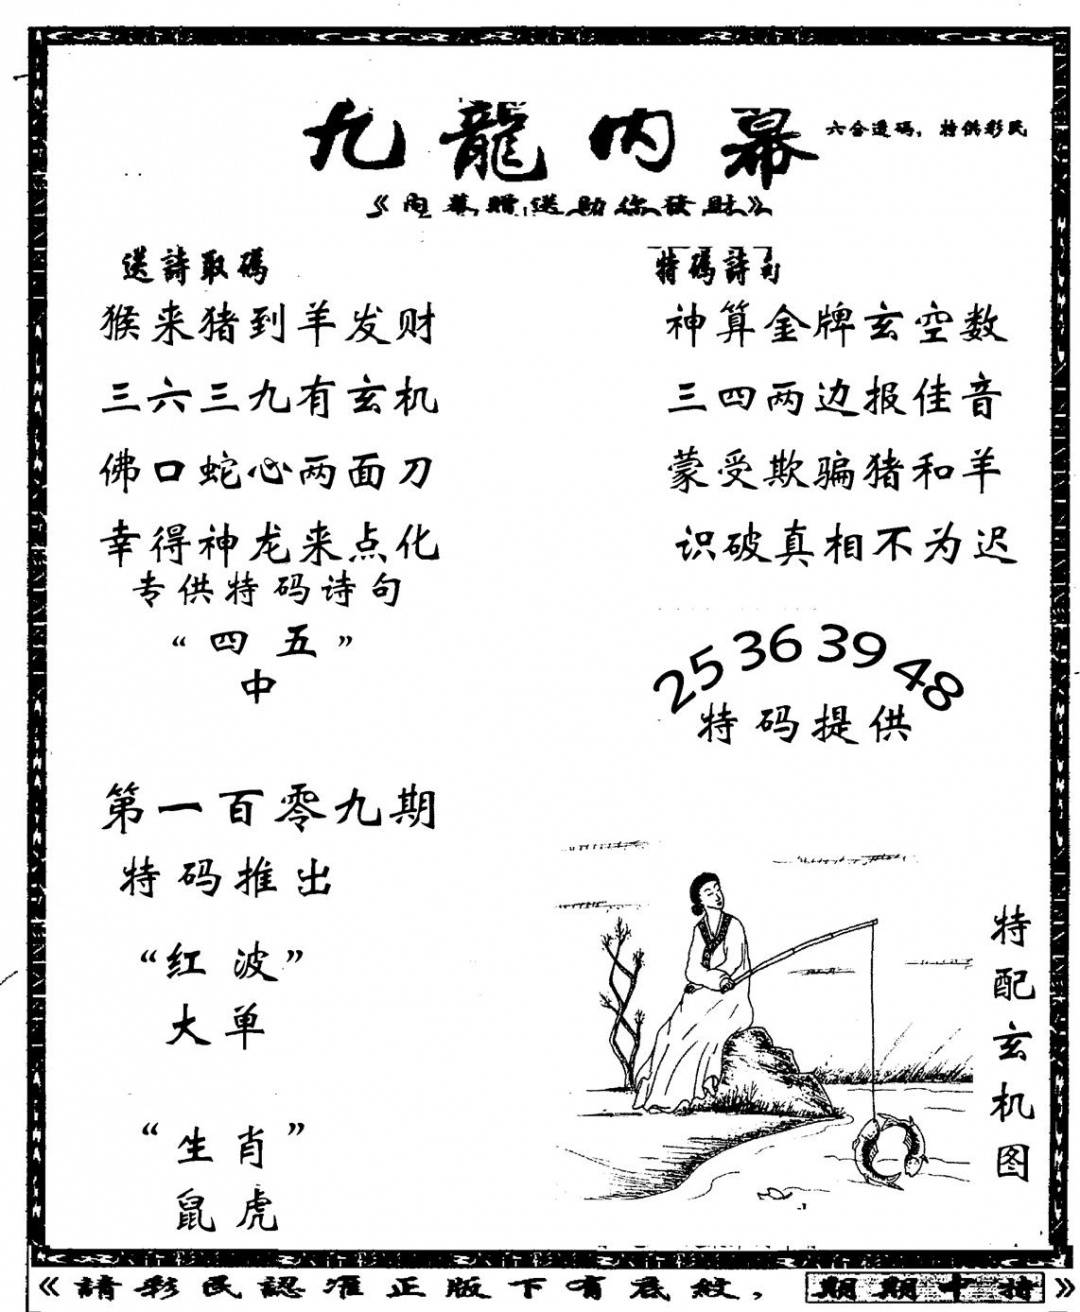 九龍内幕
六合透码，特供彩民
《内幕贈送助你發財》
送詩取碼
猴来猪到羊发财
三六三九有玄机
佛口蛇心两面刀
幸得神龙来点化
专供特码诗句
“四五”
中
第一百零九期
特码推出
“红波”
大单
“生肖”
鼠虎
特碼詩句
神算金牌玄空数
三四两边报佳音
蒙受欺骗猪和羊
识破真相不为迟
25 36 39 48
特码提供
特配玄机图
《請彩民認准正版下有底紋，期期中特》